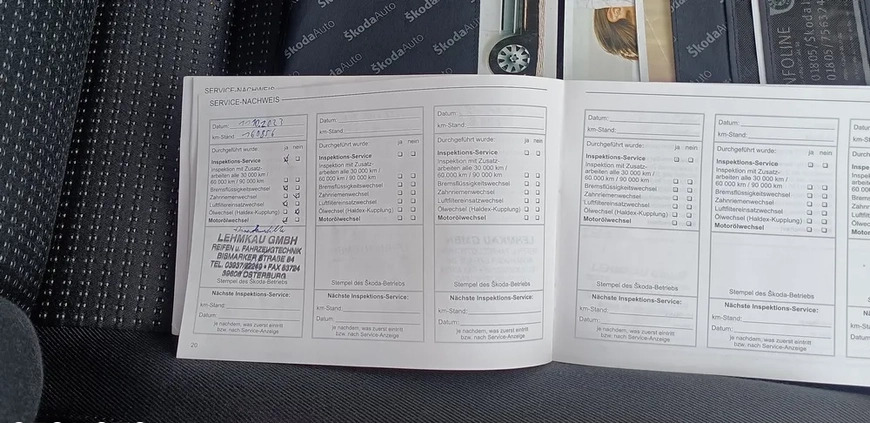 ŠkodaAuto
ŠkodaAuto
ŠkodaAuto
ŠkodaAuto
ŠkodaAuto
NFOLINE
SERVICE-NACHWEIS
SERVICE-NACHWEIS
Datum:
km-Stand: 160856
Durchgeführt wurde: ja nein
Inspektions-Service
Inspektion mit Zusatz-
arbeiten alle 30 000 km /
60 000 km / 90 000 km
Bremsflüssigkeitswechsel
Zahnriemenwechsel
Luftfiltereinsatzwechsel
Ölwechsel (Haldex-Kupplung)
Motorölwechsel
LEHMKAU GMBH
REIFEN u. FAHRZEUGTECHNIK
BISMARKER STRAßE 84
39606 OSTERBURG
Stempel des Škoda-Betriebs
Nächste Inspektions-Service:
km-Stand:
Datum:
je nachdem, was zuerst eintritt
bzw. nach Service-Anzeige
20
Datum:
km-Stand:
Durchgeführt wurde: ja nein
Inspektions-Service
Inspektion mit Zusatz-
arbeiten alle 30 000 km /
60 000 km / 90 000 km
Bremsflüssigkeitswechsel
Zahnriemenwechsel
Luftfiltereinsatzwechsel
Ölwechsel (Haldex-Kupplung)
Motorölwechsel
Stempel des Škoda-Betriebs
Nächste Inspektions-Service:
km-Stand:
Datum:
je nachdem, was zuerst eintritt
bzw. nach Service-Anzeige
Datum:
km-Stand:
Durchgeführt wurde: ja nein
Inspektions-Service
Inspektion mit Zusatz-
arbeiten alle 30 000 km /
60 000 km / 90 000 km
Bremsflüssigkeitswechsel
Zahnriemenwechsel
Luftfiltereinsatzwechsel
Ölwechsel (Haldex-Kupplung)
Motorölwechsel
Stempel des Škoda-Betriebs
Nächste Inspektions-Service:
km-Stand:
Datum:
je nachdem, was zuerst eintritt
bzw. nach Service-Anzeige
Datum:
km-Stand:
Durchgeführt wurde: ja nein
Inspektions-Service
Inspektion mit Zusatz-
arbeiten alle 30 000 km /
60 000 km / 90 000 km
Bremsflüssigkeitswechsel
Zahnriemenwechsel
Luftfiltereinsatzwechsel
Ölwechsel (Haldex-Kupplung)
Motorölwechsel
Stempel des Škoda-Betriebs
Nächste Inspektions-Service:
km-Stand:
Datum:
je nachdem, was zuerst eintritt
bzw. nach Service-Anzeige
Datum:
km-Stand:
Durchgeführt wurde: ja nein
Inspektions-Service
Inspektion mit Zusatz-
arbeiten alle 30 000 km /
60 000 km / 90 000 km
Bremsflüssigkeitswechsel
Zahnriemenwechsel
Luftfiltereinsatzwechsel
Ölwechsel (Haldex-Kupplung)
Motorölwechsel
Stempel des Škoda-Betriebs
Nächste Inspektions-Service:
km-Stand:
Datum:
je nachdem, was zuerst eintritt
bzw. nach Service-Anzeige